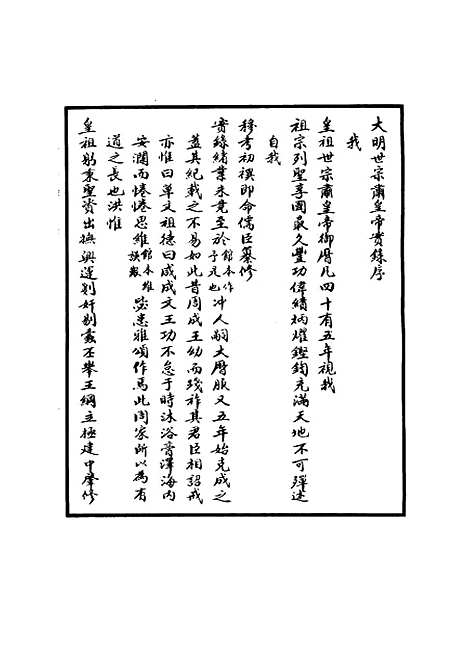 大明世宗肅皇帝實錄序
我
皇祖世宗肅皇帝御曆凡四十有五年視我
祖宗列聖享國最久豐功偉績炳耀鏗鍧充滿天地不可殫述
自我
穆考初禩即命儒臣纂修
實錄緒業未竟至於館本作于是也冲人嗣大曆服又五年始克成之
蓋其紀載之不易如此昔周成王幼而踐祚其君臣相詔戒
亦惟曰单文祖德曰咸成文王功不怠于時沐浴膏澤海内
安瀾而惓惓思維館本維誤惟㦤恚雅頌作焉此周家所以為有
道之長也洪惟
皇祖躬秉聖資出撫興運剗奸剔蠹丕舉王綱立極建中肇修